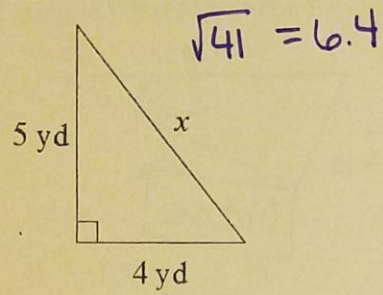 √41 = 6.4
5 yd
x
4 yd